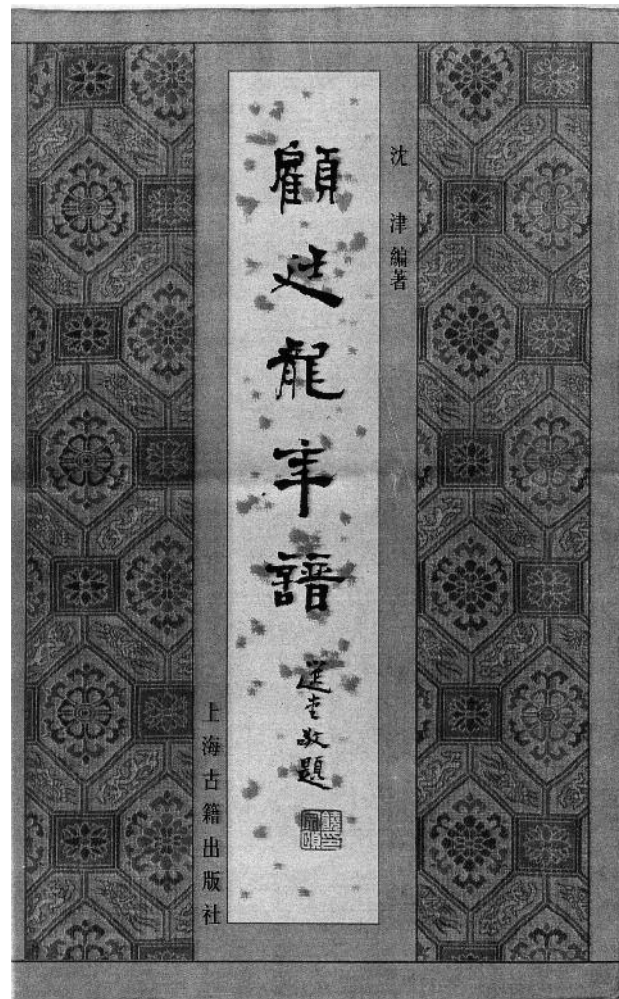 沈津編著
顧廷龍年譜
選堂敬題
上海古籍出版社